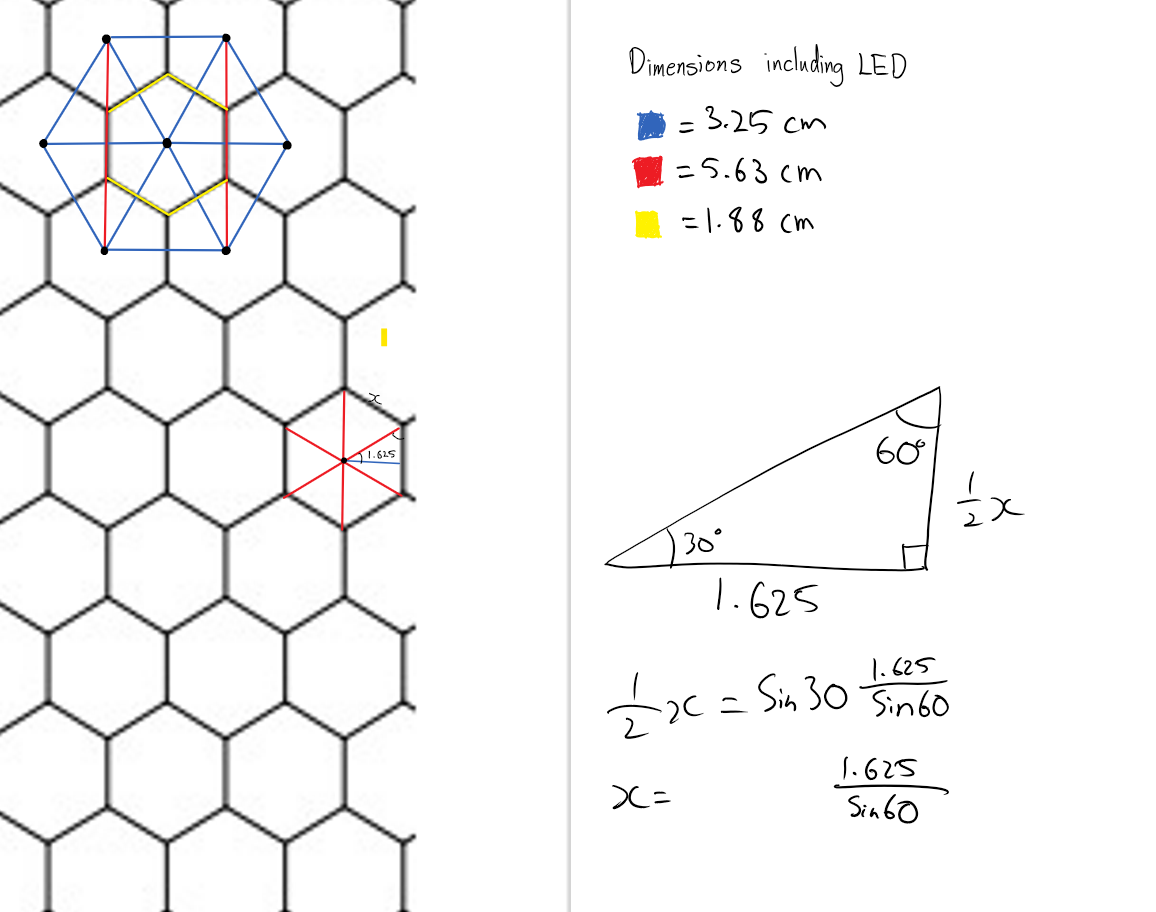 Dimensions including LED
= 3.25 cm
= 5.63 cm
= 1.88 cm
x
1.625
60°
1/2 x
30°
1.625
1/2 x = Sin 30 1.625/Sin60
x = 1.625/Sin60